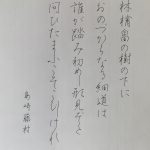 林檎畠の樹の下に
おのづからなる細道は
誰が踏み初めし形見ぞと
問ひたまふこそこひしけれ
島崎藤村